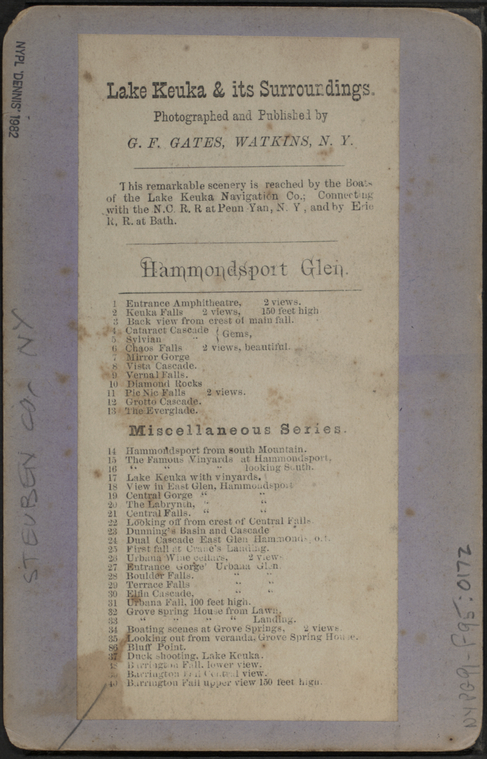 Lake Keuka & its Surroundings.
Photographed and Published by
G. F. GATES, WATKINS, N. Y.
This remarkable scenery is reached by the Boats
of the Lake Keuka Navigation Co.; Connecting
with the N.C. R. R at Penn Yan, N. Y, and by Erie
R. R. at Bath.
Hammondsport Glen.
1 Entrance Amphitheatre, 2 views.
2 Keuka Falls 2 views, 150 feet high
3 Back view from crest of main fall.
4 Cataract Cascade { Gems,
5 Sylvian
6 Chaos Falls 2 views, beautiful.
7 Mirror Gorge
8 Vista Cascade.
9 Vernal Falls.
10 Diamond Rocks
11 Pic Nic Falls 2 views.
12 Grotto Cascade.
13 The Everglade.
Miscellaneous Series.
14 Hammondsport from south Mountain.
15 The Famous Vinyards at Hammondsport,
16 " " " looking South.
17 Lake Keuka with vinyards,
18 View in East Glen, Hammondsport
19 Central Gorge " "
20 The Labrynth, " "
21 Central Falls. " "
22 Looking off from crest of Central Falls
23 Dunning's Basin and Cascade "
24 Dual Cascade East Glen Hammondsport.
25 First fall at Crane's Landing.
26 Urbana Wine cellars, 2 views
27 Entrance Gorge Urbana Glen
28 Boulder Falls. " "
29 Terrace Falls " "
30 Elfin Cascade, " "
31 Urbana Fall, 100 feet high.
32 Grove Spring House from Lawn.
33 " " " " Landing.
34 Boating scenes at Grove Springs, 2 views
35 Looking out from veranda, Grove Spring House.
86 Bluff Point.
37 Duck shooting, Lake Keuka.
Barrington Fall, lower view.
Barrington Fall Central view.
40 Barrington Fall upper view 150 feet high.
NYPL 'DENNIS' 1982
STEUBEN CO, NY